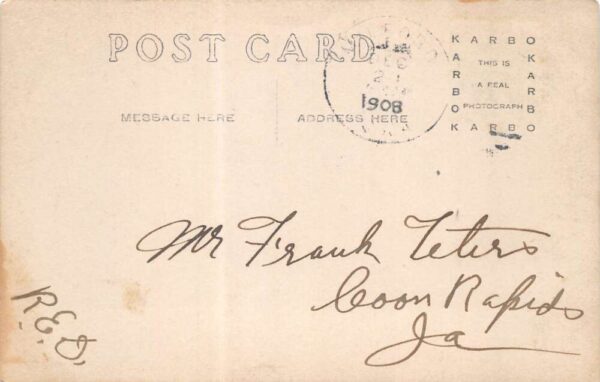 POST CARD
1908
KARBO
KARBO
THIS IS
A REAL
PHOTOGRAPH
KARBO
KARBO
MESSAGE HERE
ADDRESS HERE
Mr Frank Teters
Coon Rapids
Ia
R.F.D.